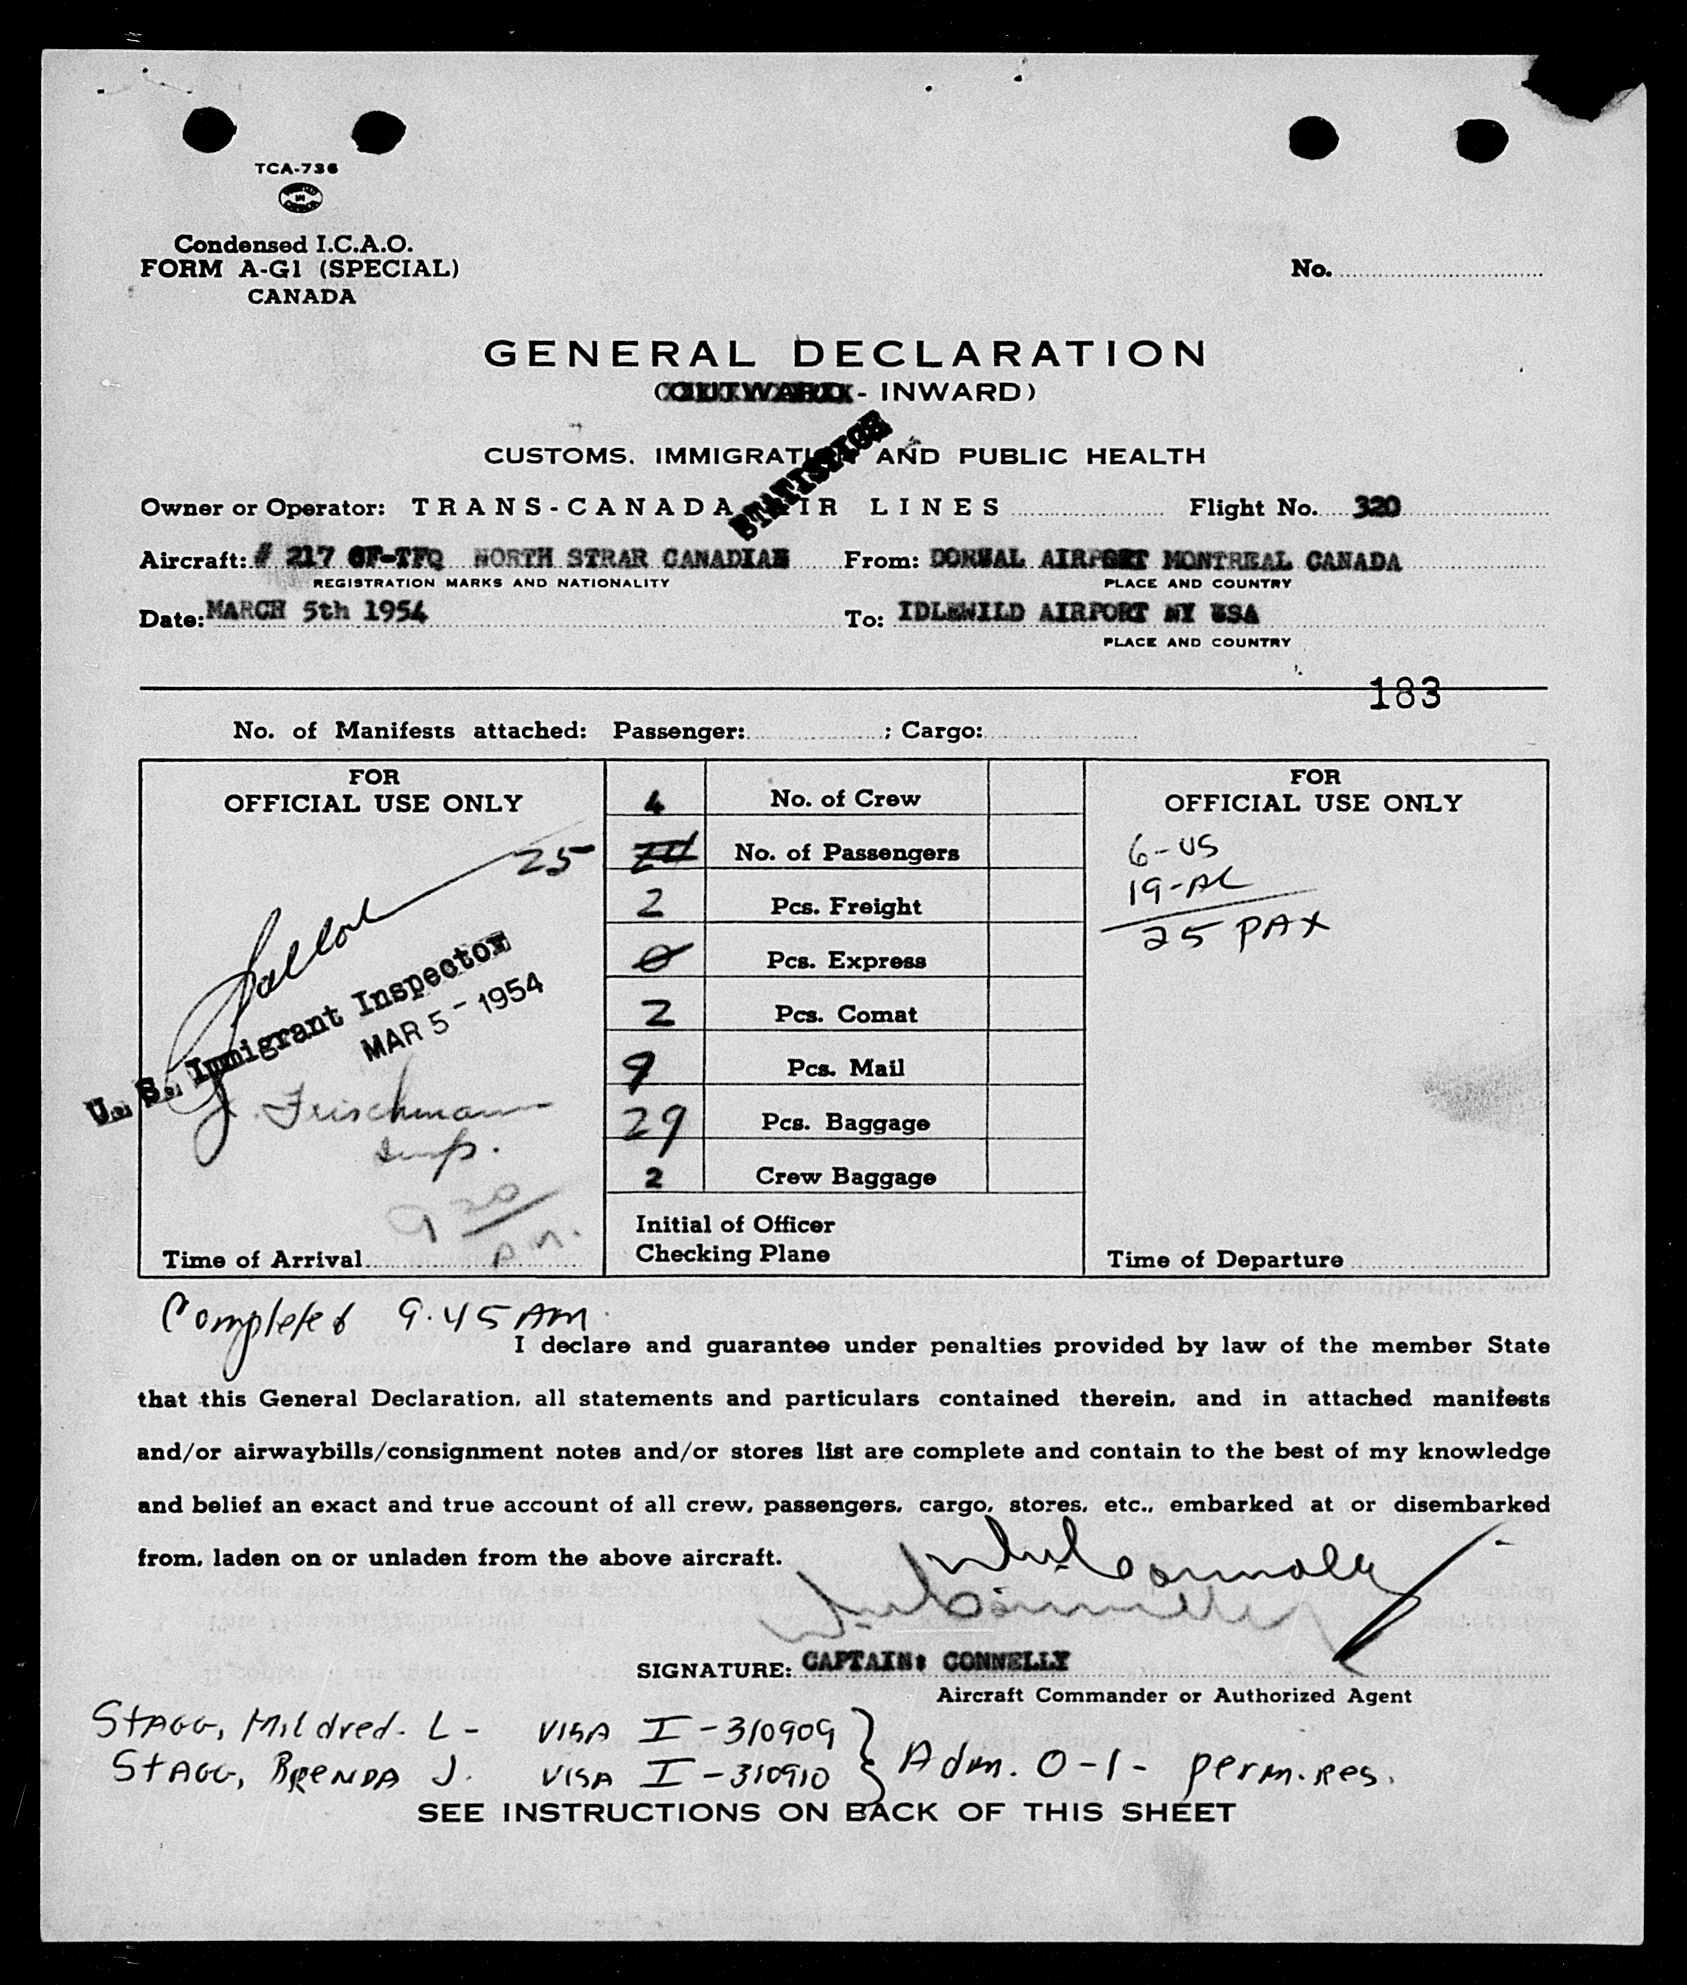 TCA-736
Condensed I.C.A.O.
FORM A-G1 (SPECIAL)
CANADA
No.
GENERAL DECLARATION
(OUTWARD - INWARD)
CUSTOMS, IMMIGRATION AND PUBLIC HEALTH
STATISTICS
Owner or Operator: TRANS-CANADA AIR LINES Flight No. 320
Aircraft: # 217 CF-TFQ NORTH STRAR CANADIAN From: DORVAL AIRPORT MONTREAL CANADA
REGISTRATION MARKS AND NATIONALITY PLACE AND COUNTRY
Date: MARCH 5th 1954 To: IDLEWILD AIRPORT NY USA
PLACE AND COUNTRY
183
No. of Manifests attached: Passenger: ; Cargo:
FOR
OFFICIAL USE ONLY
25
U. S. Immigrant Inspector
MAR 5 - 1954
J. Frischmann
Insp.
9 20/pm.
Time of Arrival
4 No. of Crew
No. of Passengers
2 Pcs. Freight
0 Pcs. Express
2 Pcs. Comat
9 Pcs. Mail
29 Pcs. Baggage
2 Crew Baggage
Initial of Officer
Checking Plane
FOR
OFFICIAL USE ONLY
6-US
19-AL
25 PAX
Time of Departure
Completed 9.45 AM.
I declare and guarantee under penalties provided by law of the member State
that this General Declaration, all statements and particulars contained therein, and in attached manifests
and/or airwaybills/consignment notes and/or stores list are complete and contain to the best of my knowledge
and belief an exact and true account of all crew, passengers, cargo, stores, etc., embarked at or disembarked
from, laden on or unladen from the above aircraft.
SIGNATURE: CAPTAIN: CONNELLY
Aircraft Commander or Authorized Agent
STAGG, Mildred. L - VISA I-310909
STAGG, BRENDA J. VISA I-310910 } Adm. 0-1- perm. res.
SEE INSTRUCTIONS ON BACK OF THIS SHEET